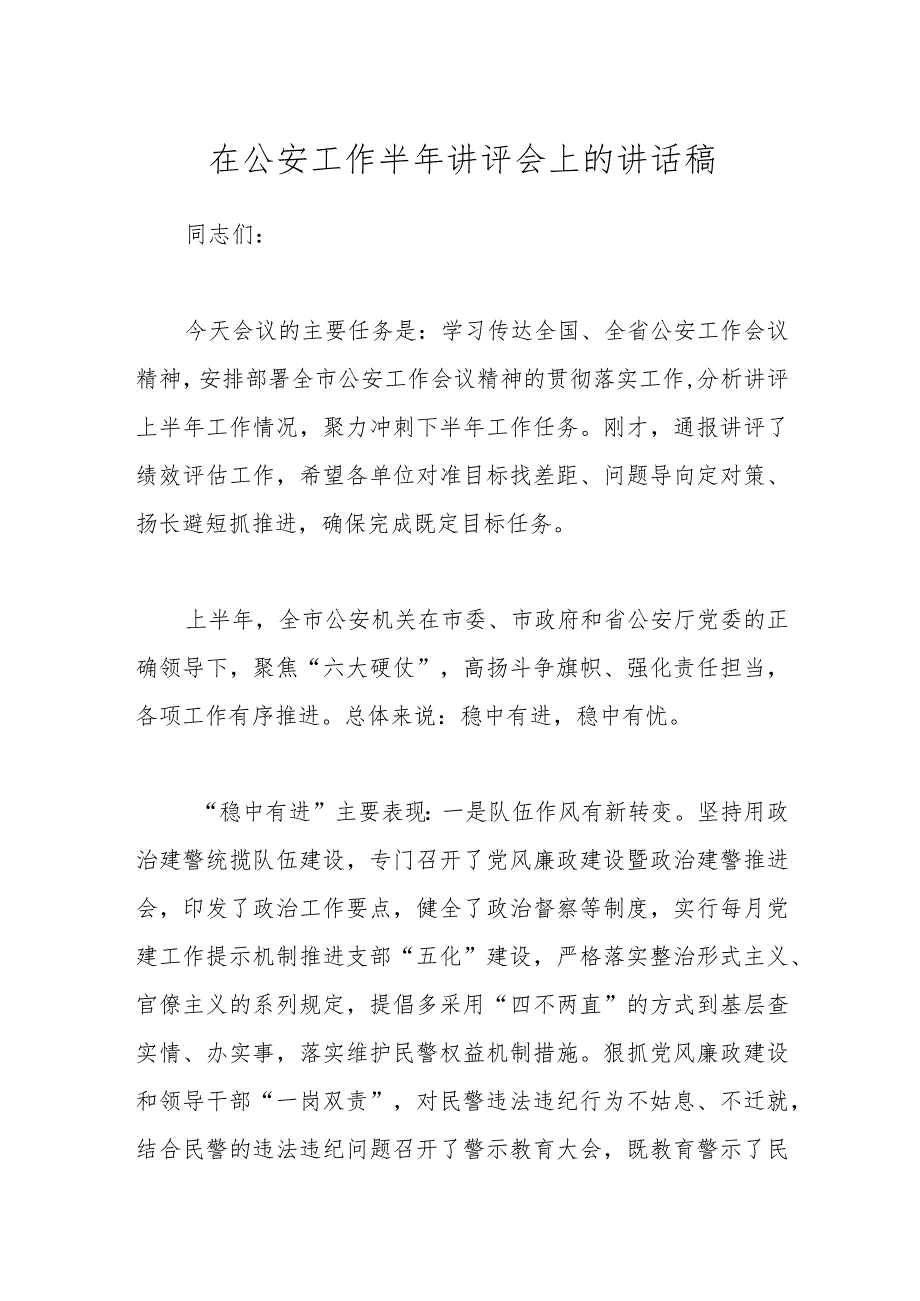 在公安工作半年讲评会上的讲话稿
同志们：
今天会议的主要任务是：学习传达全国、全省公安工作会议
精神，安排部署全市公安工作会议精神的贯彻落实工作,分析讲评
上半年工作情况，聚力冲刺下半年工作任务。刚才，通报讲评了
绩效评估工作，希望各单位对准目标找差距、问题导向定对策、
扬长避短抓推进，确保完成既定目标任务。
上半年，全市公安机关在市委、市政府和省公安厅党委的正
确领导下，聚焦“六大硬仗”，高扬斗争旗帜、强化责任担当，
各项工作有序推进。总体来说：稳中有进，稳中有忧。
“稳中有进”主要表现：一是队伍作风有新转变。坚持用政
治建警统揽队伍建设，专门召开了党风廉政建设暨政治建警推进
会，印发了政治工作要点，健全了政治督察等制度，实行每月党
建工作提示机制推进支部“五化”建设，严格落实整治形式主义、
官僚主义的系列规定，提倡多采用“四不两直”的方式到基层查
实情、办实事，落实维护民警权益机制措施。狠抓党风廉政建设
和领导干部“一岗双责”，对民警违法违纪行为不姑息、不迁就，
结合民警的违法违纪问题召开了警示教育大会，既教育警示了民